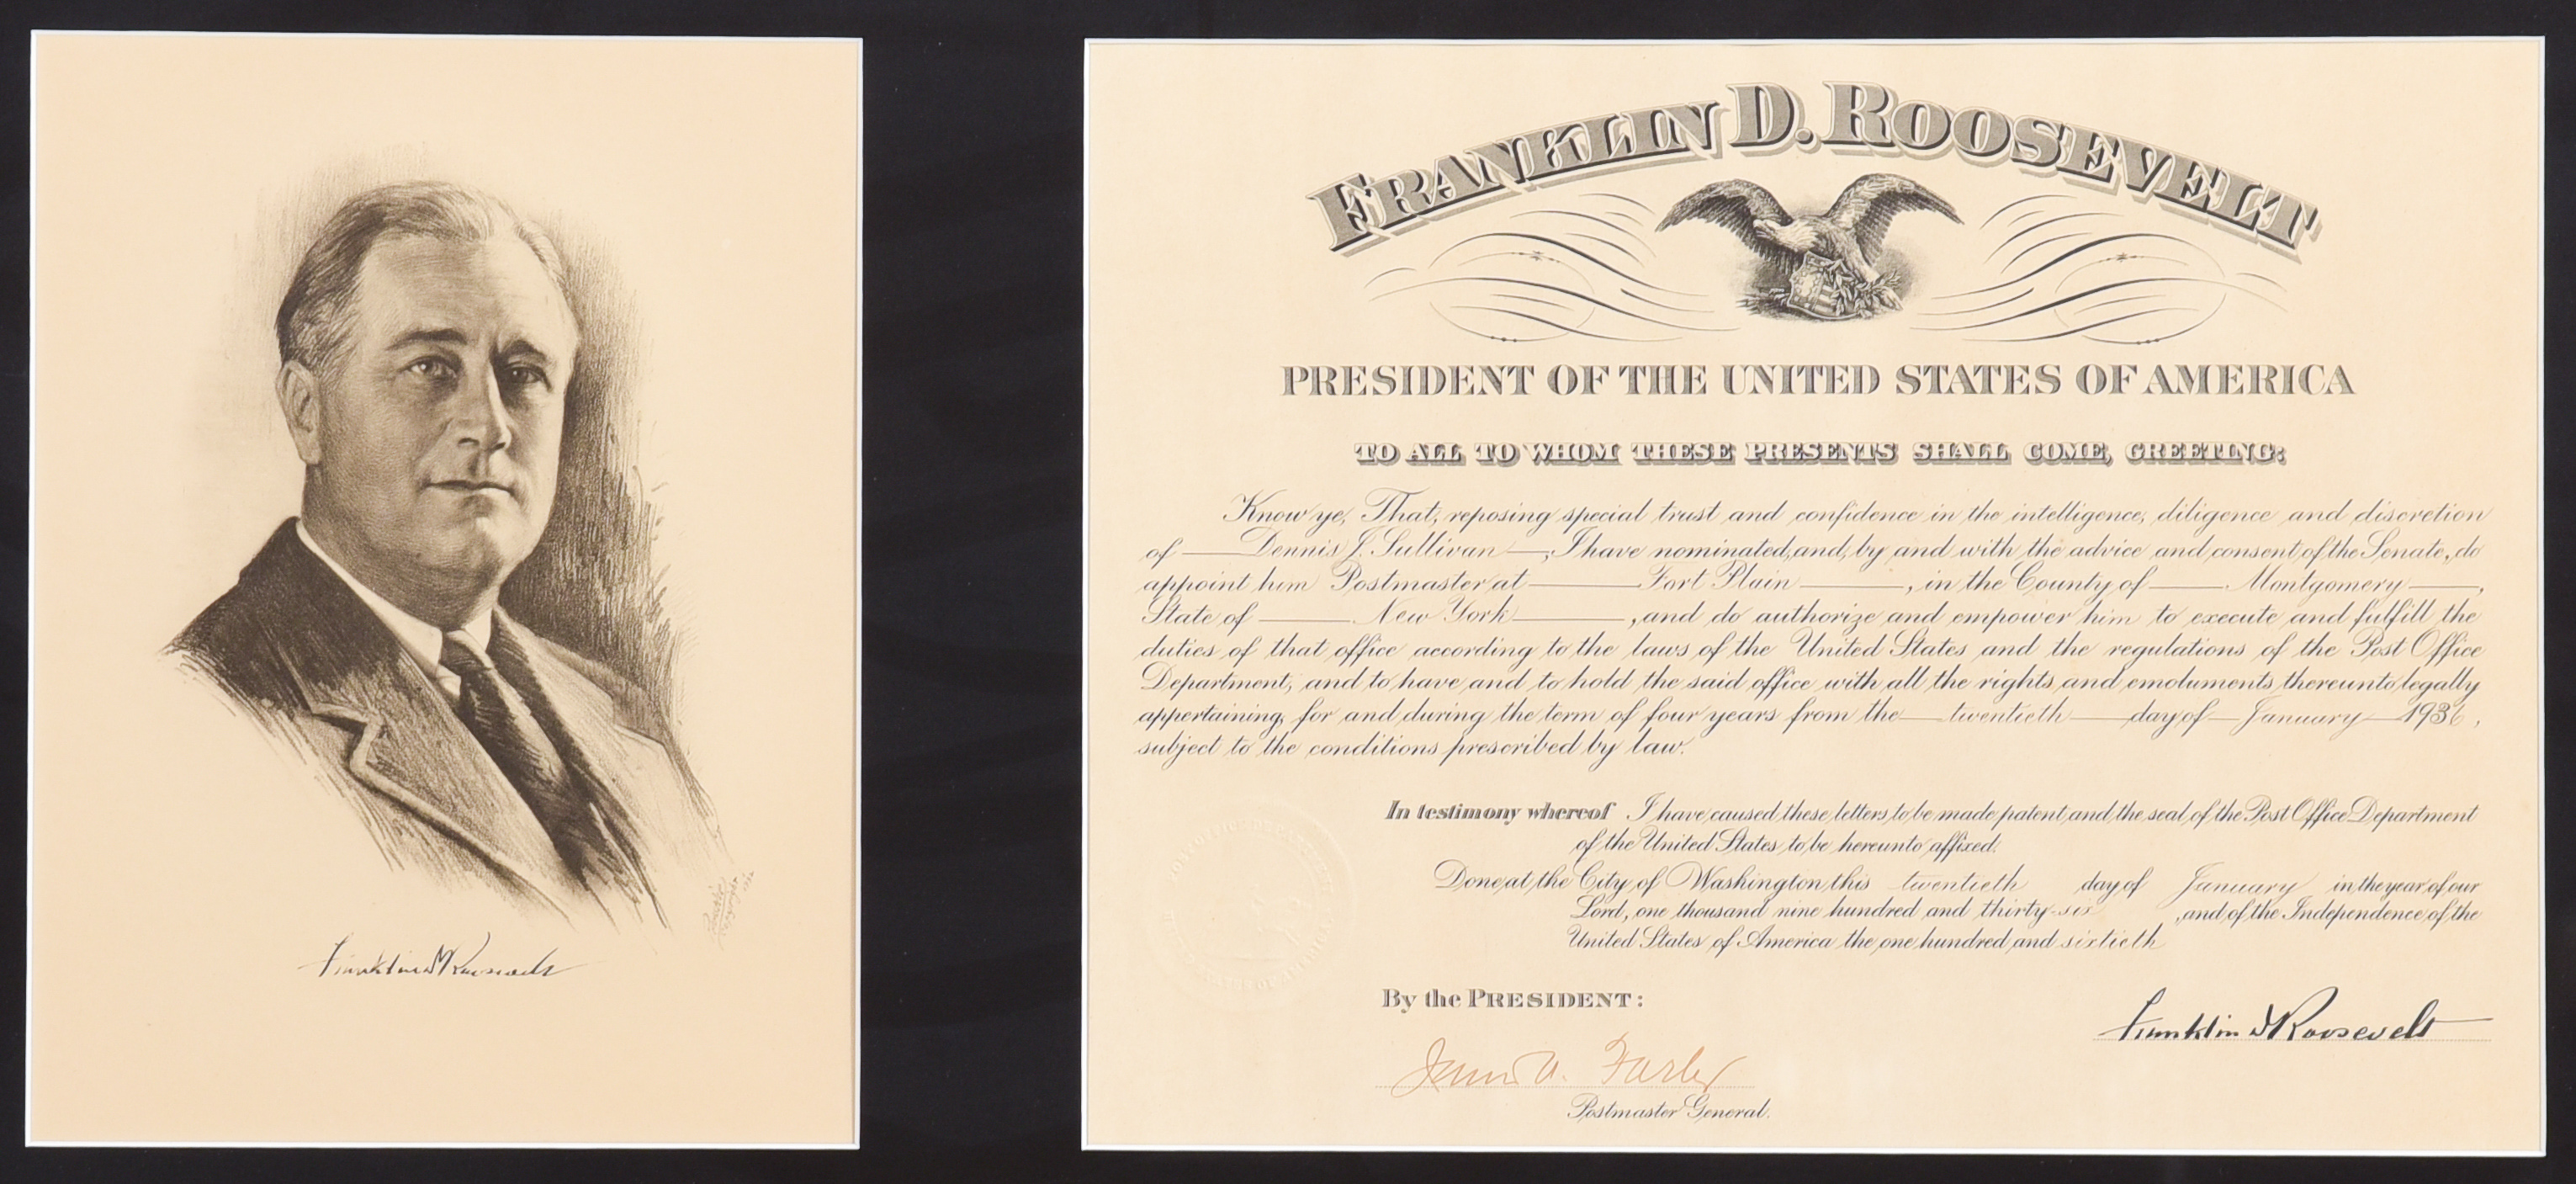 Franklin D Roosevelt
FRANKLIN D. ROOSEVELT
PRESIDENT OF THE UNITED STATES OF AMERICA
TO ALL TO WHOM THESE PRESENTS SHALL COME, GREETING:
Know ye, That, reposing special trust and confidence in the intelligence, diligence and discretion
of Dennis J. Sullivan, I have nominated, and, by and with the advice and consent of the Senate, do
appoint him Postmaster at Fort Plain, in the County of Montgomery,
State of New York, and do authorize and empower him to execute and fulfill the
duties of that office according to the laws of the United States and the regulations of the Post Office
Department, and to have and to hold the said office with all the rights and emoluments thereunto legally
appertaining, for and during the term of four years from the twentieth day of January 1936,
subject to the conditions prescribed by law.
In testimony whereof I have caused these letters to be made patent and the seal of the Post Office Department
of the United States to be hereunto affixed.
Done at the City of Washington this twentieth day of January in the year of our
Lord, one thousand nine hundred and thirty-six, and of the Independence of the
United States of America the one hundred and sixtieth
By the PRESIDENT:
Franklin D Roosevelt
James A. Farley
Postmaster General.